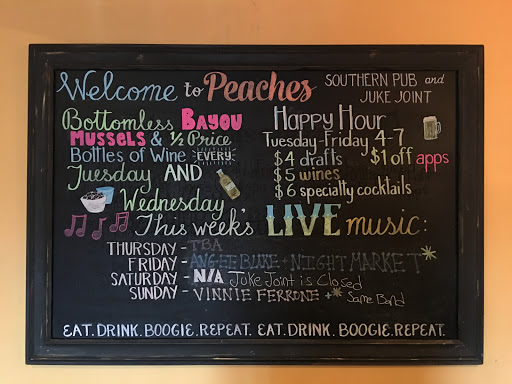 Welcome to Peaches SOUTHERN PUB and JUKE JOINT
Bottomless BAYOU
MUSSELS & ½ PRICE
Bottles of Wine EVERY
Tuesday AND
Wednesday
Happy Hour
Tuesday-Friday 4-7
$4 drafts $1 off apps
$5 wines
$6 specialty cocktails
This week's LIVE music:
THURSDAY - TBA
FRIDAY - NIGHT MARKET*
SATURDAY - N/A Juke Joint is Closed
SUNDAY - VINNIE FERRONE + * Same Band
EAT. DRINK. BOOGIE. REPEAT. EAT. DRINK. BOOGIE. REPEAT.